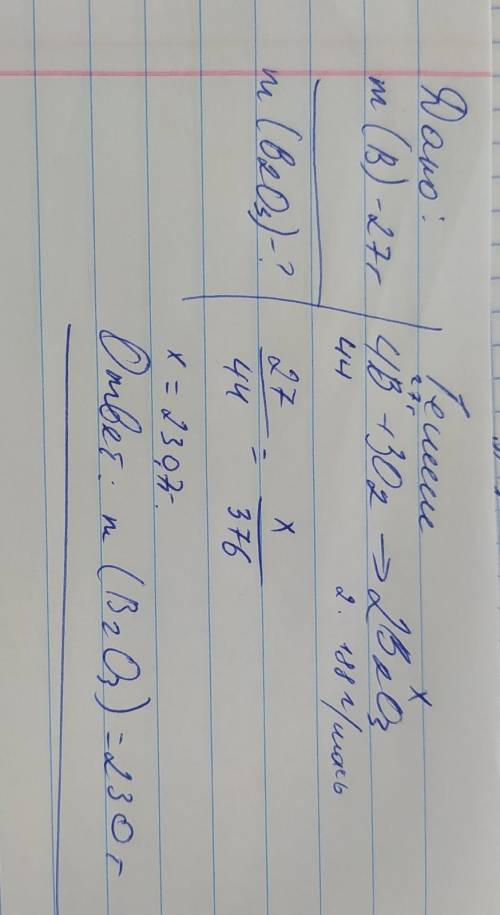 Дано:
m(B)-27г
m(B2O3)-?
Решение
27г x
4B+3O2 => 2B2O3
44 2·188г/моль
27/44 = x/376
x = 230,7.
Ответ: m(B2O3)-230г